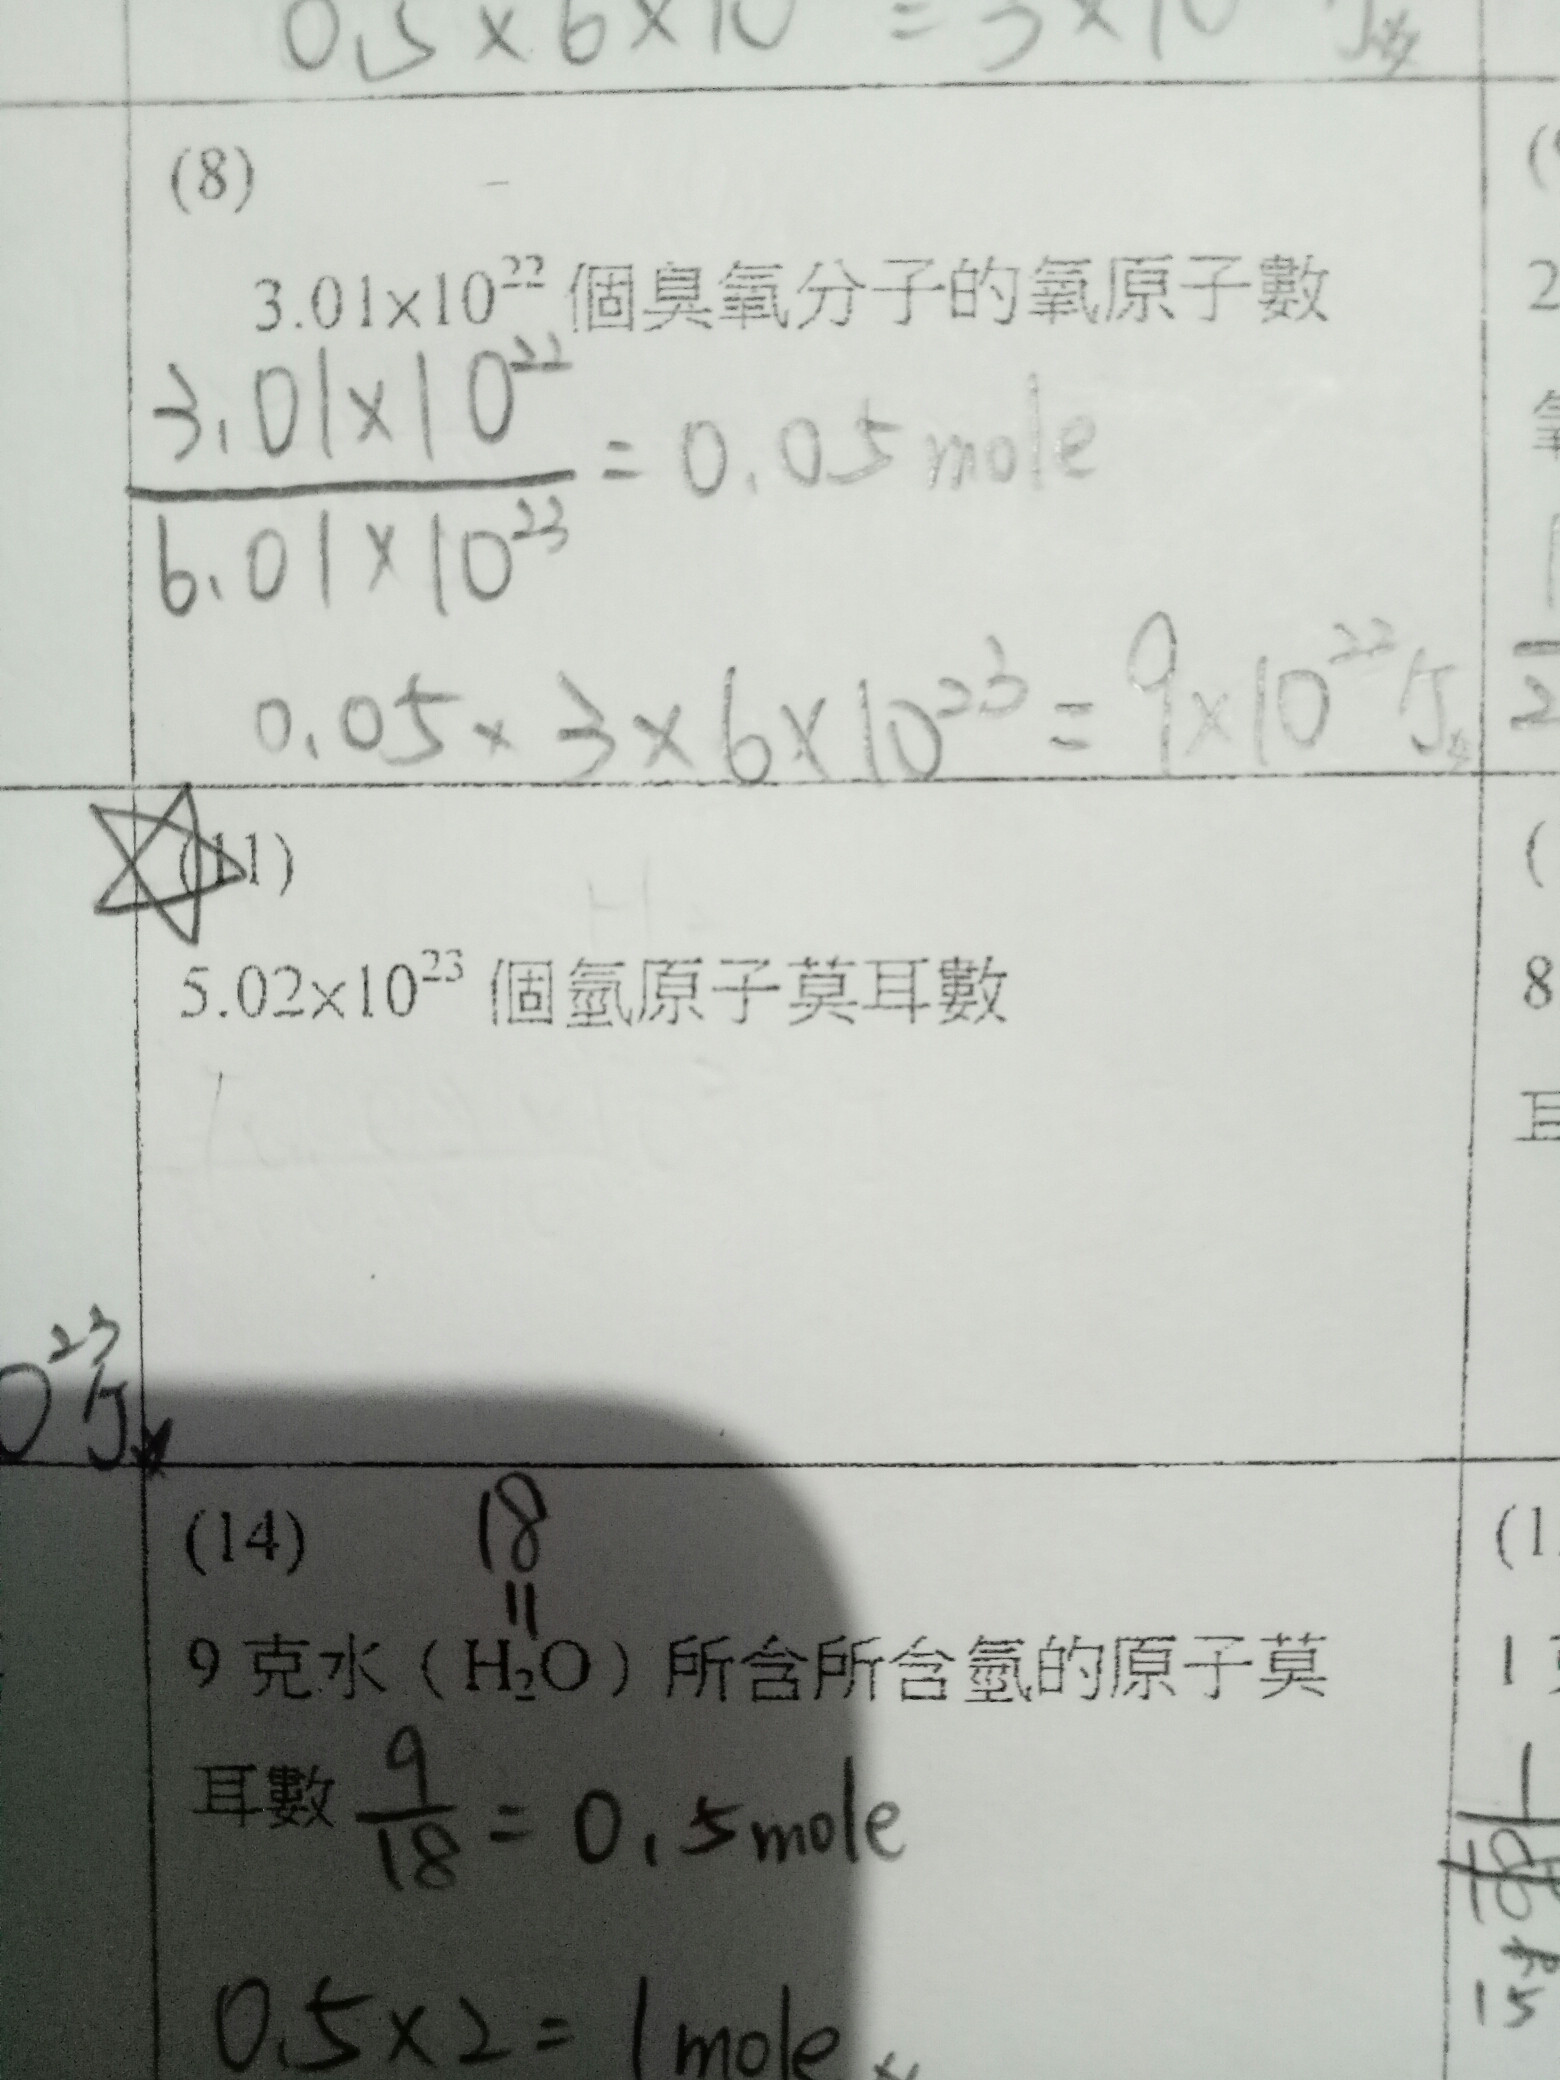 0.5×6×10 = 3×10 個
(8)
3.01×10²² 個臭氧分子的氧原子數
3.01×10²²
6.01×10²³
= 0.05 mole
0.05 × 3 × 6 × 10²³ = 9×10²² 個
(11)
5.02×10²³ 個氫原子莫耳數
0²³ 個
(14)
18
=
9 克水（H₂O）所含所含氫的原子莫
耳數 9/18 = 0.5 mole
0.5×2 = 1 mole
2
2
8
耳
1
15